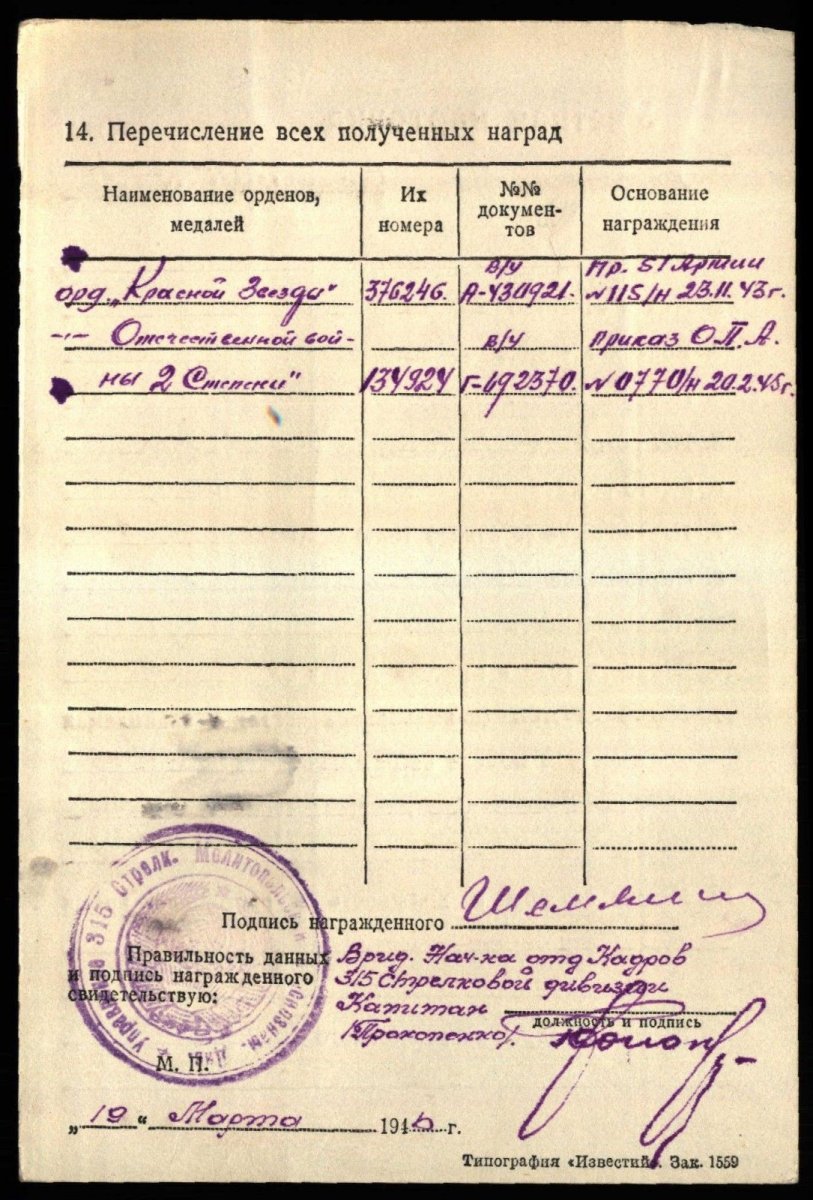 14. Перечисление всех полученных наград
Наименование орденов, медалей
Их номера
№№ документов
Основание награждения
в/у Пр. 51 Армии
орд. „Красной Звезды" 376246. А-430921. №115/н 23.11.43г.
-"- Отечественной вой- в/у Приказ О.П.А.
ны 2 Степени" 134924 Г-492370. №0770/н 20.2.45г.
Управление 315 Стрелк. Мелитопольск. Краснознам. Див.
Подпись награжденного Шемякин
Правильность данных Врид. Нач-ка отд Кадров
и подпись награжденного 315 Стрелковой дивизии
свидетельствую: Капитан
должность и подпись
/Прокопенко/.
М. П.
„19" Марта 1946 г.
Типография «Известий». Зак. 1559